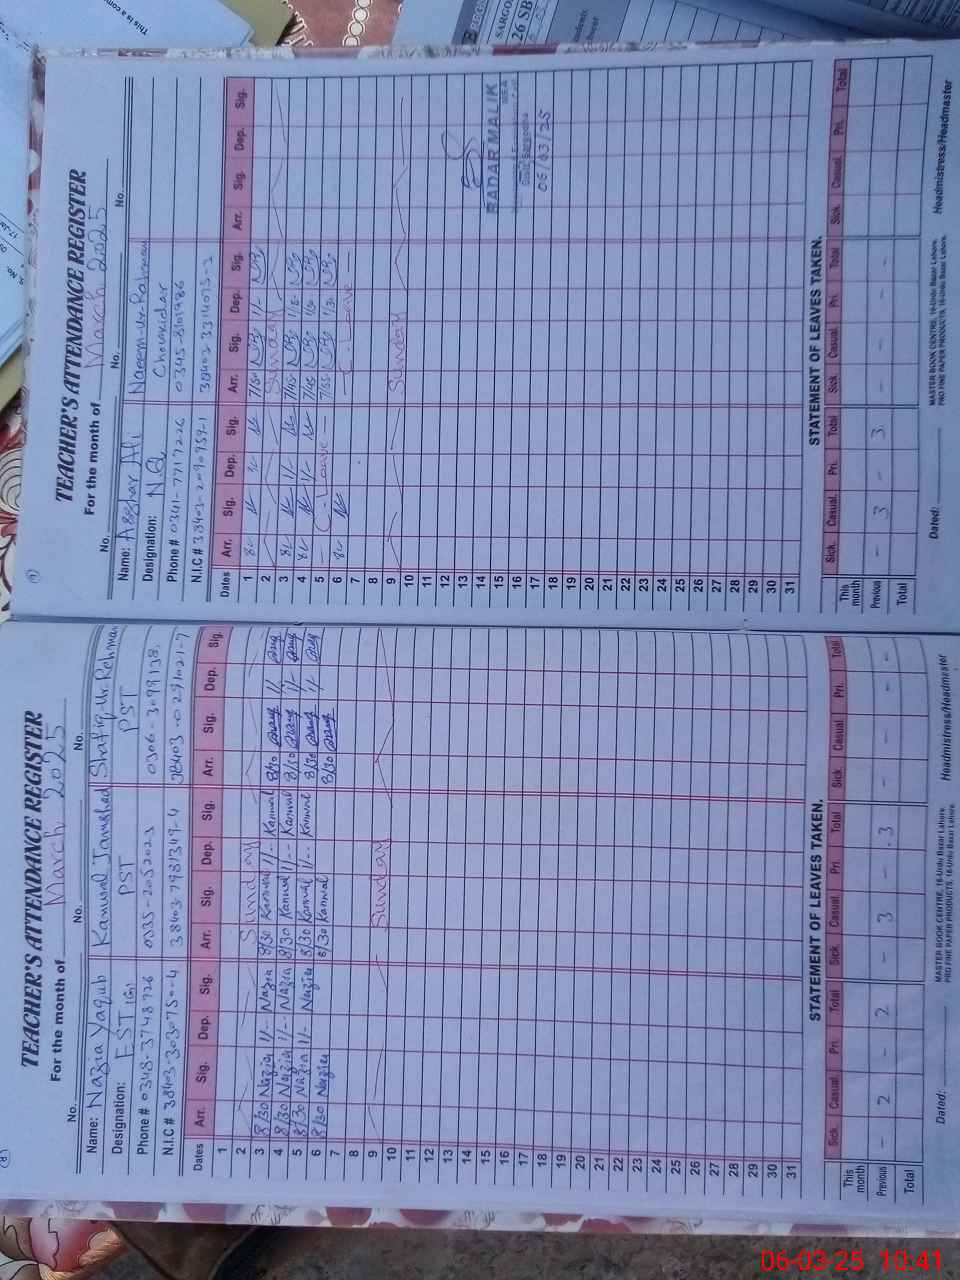 TEACHER'S ATTENDANCE REGISTER
For the month of March 2025
No. No. No.
Name: Nazia Yaqub Kanwal Jamshed Shafiq-Ur-Rehman
Designation: EST PST PST
Phone # 0348-3748726 0335-2052023 0306-3099138
N.I.C # 38403-3030750-4 38403-7981349-4 38403-0291021-7
Dates Arr. Sig. Dep. Sig. Arr. Sig. Dep. Sig. Arr. Sig. Dep. Sig.
1
2 Sunday
3 8/30 Nazia 1/-- Nazia 8/30 Kanwal 1/-- Kanwal 8/30 1/-
4 8/30 Nazia 1/-- Nazia 8/30 Kanwal 1/-- Kanwal 8/30 1/-
5 8/30 Nazia 1/- Nazia 8/30 Kanwal 1/-- Kanwal 8/30 1/-
6 8/30 Nazia 8/30 Kanwal 8/30
7
8
9 Sunday
10
11
12
13
14
15
16
17
18
19
20
21
22
23
24
25
26
27
28
29
30
31
STATEMENT OF LEAVES TAKEN.
Sick. Casual. Pri. Total Sick. Casual. Pri. Total Sick. Casual Pri. Total
This month
Previous - 2 - 2 - 3 - 3 - - - -
Total
MASTER BOOK CENTRE, 16-Urdu Bazar Lahore.
PRO FINE PAPER PRODUCTS, 16-Urdu Bazar Lahore.
Dated: Headmistress/Headmaster
TEACHER'S ATTENDANCE REGISTER
For the month of March 2025
No. No. No.
Name: Asghar Ali Naeem-Ur-Rehman
Designation: N.Q Chowkidar
Phone # 0341-7717226 0345-8101986
N.I.C # 38403-2090959-1 38403-3314075-3
Dates Arr. Sig. Dep. Sig. Arr. Sig. Dep. Sig. Arr. Sig. Dep. Sig.
1 7/50 1/-
2 Sunday
3 1/- 7/45 1/15
4 1/- 7/45 1/30
5 C. Leave 7/55 1/30
6 C. Leave
7
8
9 Sunday
10
11
12
13
14
15
16
17
18
19
20
21
22
23
24
25
26
27
28
29
30
31
BADAR MALIK
06/03/25
STATEMENT OF LEAVES TAKEN.
Sick. Casual. Pri. Total Sick. Casual. Pri. Total Sick. Casual Pri. Total
This month
Previous - 3 - 3 - - - -
Total
MASTER BOOK CENTRE, 16-Urdu Bazar Lahore.
PRO FINE PAPER PRODUCTS, 16-Urdu Bazar Lahore.
Dated: Headmistress/Headmaster
This is a com
26 SB
06-03-25 10:41